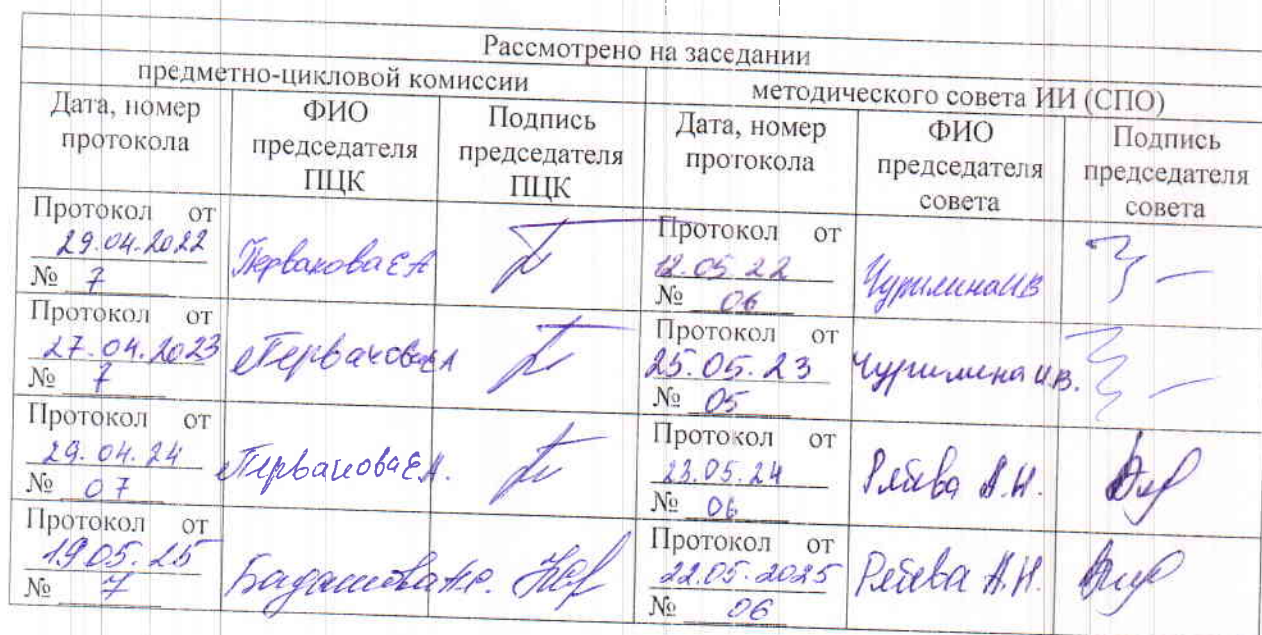 Рассмотрено на заседании
предметно-цикловой комиссии
методического совета ИИ (СПО)
Дата, номер протокола
ФИО председателя ПЦК
Подпись председателя ПЦК
Дата, номер протокола
ФИО председателя совета
Подпись председателя совета
Протокол от
29.04.2022
№ 7
Протокол от
12.05 22
№ 06
Чурилина ИВ
Протокол от
27.04.2023
№ 7
Протокол от
25.05.23
№ 05
Чурилина И.В.
Протокол от
29.04.24
№ 07
Протокол от
23.05.24
№ 06
А.Н.
Протокол от
19.05.25
№ 7
Протокол от
22.05.2025
№ 06
А.Н.